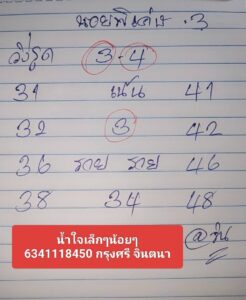 นอยพิเศษ .3
วิ่งรูด 3-4
31 เน้น 41
32 3 42
36 รวย รวย 46
38 34 48
น้ำใจเล็กๆน้อยๆ
6341118450 กรุงศรี จินตนา